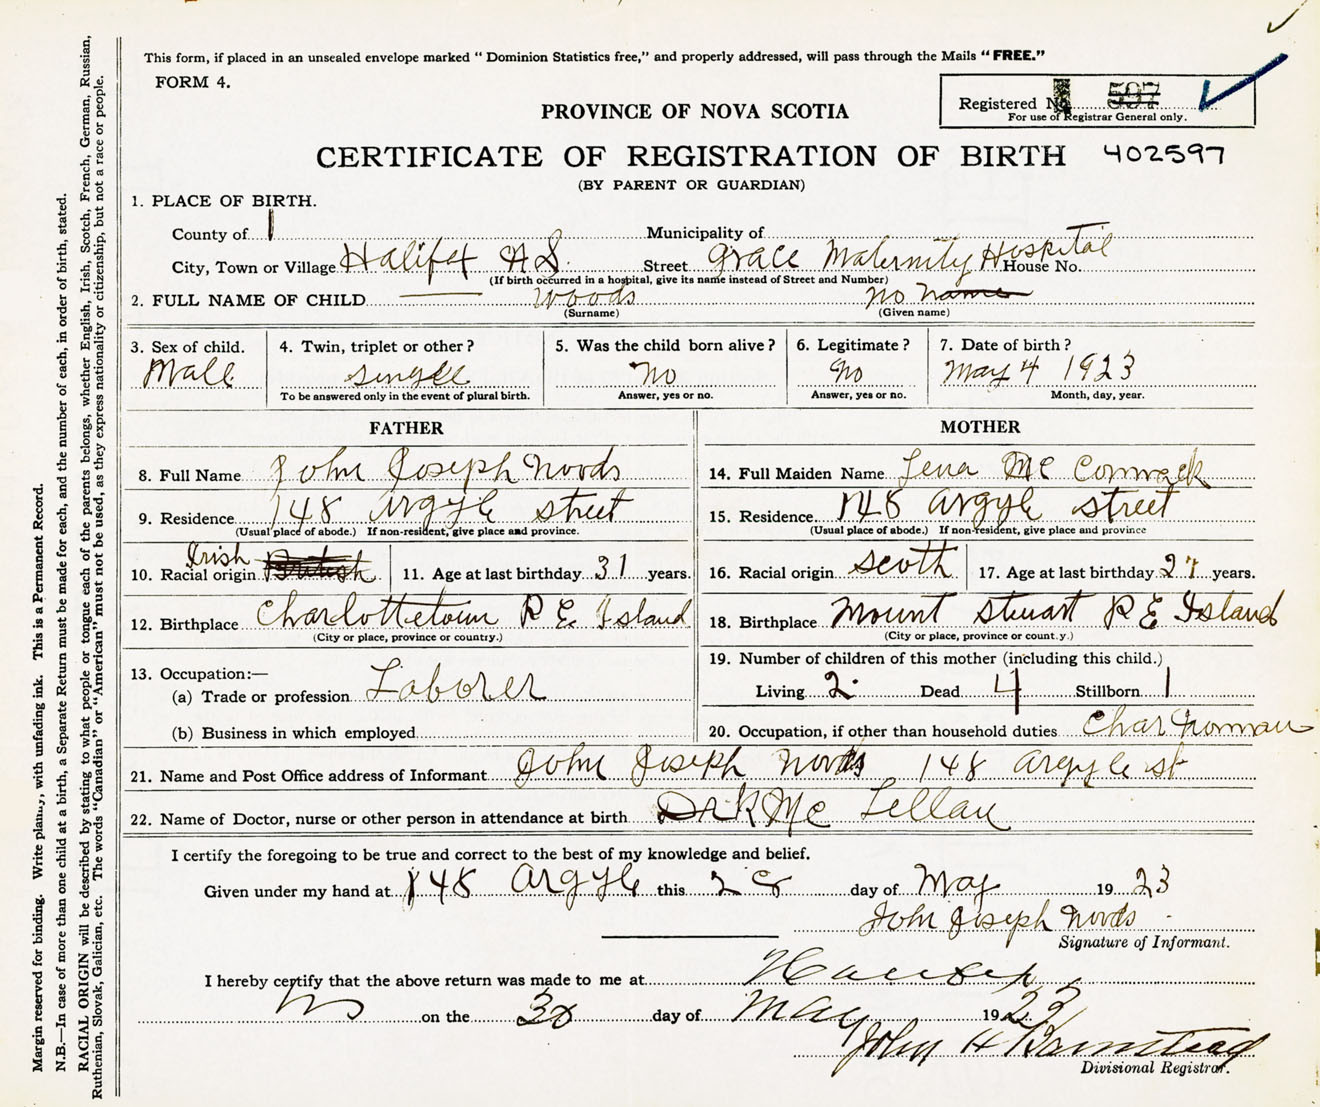 This form, if placed in an unsealed envelope marked " Dominion Statistics free," and properly addressed, will pass through the Mails "FREE."
FORM 4.
Registered No. 597
For use of Registrar General only.
PROVINCE OF NOVA SCOTIA
CERTIFICATE OF REGISTRATION OF BIRTH 402597
(BY PARENT OR GUARDIAN)
1. PLACE OF BIRTH.
County of Municipality of
City, Town or Village Halifax N.S. Street Grace Maternity Hospital House No.
(If birth occurred in a hospital, give its name instead of Street and Number)
2. FULL NAME OF CHILD Woods No name
(Surname) (Given name)
3. Sex of child. 4. Twin, triplet or other? 5. Was the child born alive? 6. Legitimate? 7. Date of birth?
Male single No No May 4 1923
To be answered only in the event of plural birth. Answer, yes or no. Answer, yes or no. Month, day, year.
FATHER MOTHER
8. Full Name John Joseph Woods 14. Full Maiden Name Lena Mc Cormack
9. Residence 148 Argyle street 15. Residence 148 Argyle street
(Usual place of abode.) If non-resident, give place and province. (Usual place of abode.) If non-resident, give place and province
10. Racial origin Irish British 11. Age at last birthday 31 years. 16. Racial origin Scoth 17. Age at last birthday 27 years.
12. Birthplace Charlottetown P E Island 18. Birthplace Mount Stuart P E Island
(City or place, province or country.) (City or place, province or count.y.)
13. Occupation:— 19. Number of children of this mother (including this child.)
(a) Trade or profession Laborer Living 2 Dead 4 Stillborn 1
(b) Business in which employed 20. Occupation, if other than household duties Char Woman
21. Name and Post Office address of Informant John Joseph Woods 148 Argyle st
22. Name of Doctor, nurse or other person in attendance at birth Dr K Mc Lellan
I certify the foregoing to be true and correct to the best of my knowledge and belief.
Given under my hand at 148 Argyle this 28 day of May 1923
John Joseph Woods
Signature of Informant.
I hereby certify that the above return was made to me at Halifax
NS on the 30 day of May 1923
John H Barnstead
Divisional Registrar.
Margin reserved for binding. Write plainly, with unfading ink. This is a Permanent Record.
N.B.—In case of more than one child at a birth, a Separate Return must be made for each, and the number of each, in order of birth, stated.
RACIAL ORIGIN will be described by stating to what people or tongue each of the parents belongs, whether English, Irish, Scotch, French, German, Russian,
Ruthenian, Slovak, Galician, etc. The words "Canadian" or "American" must not be used, as they express nationality or citizenship, but not a race or people.